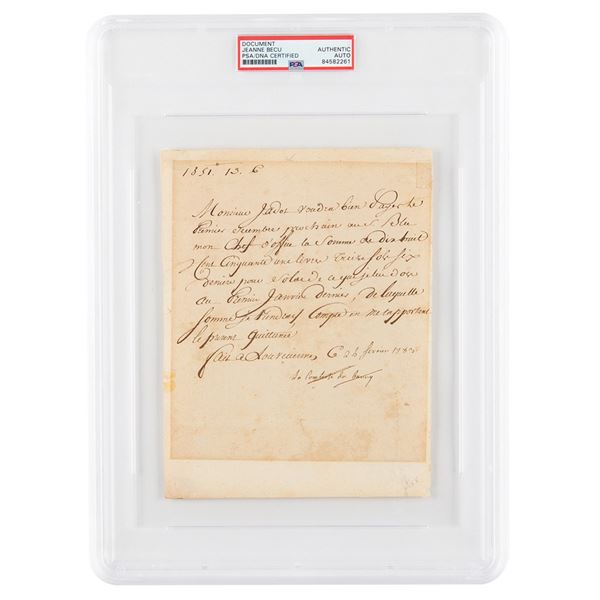 DOCUMENT
JEANNE BECU
PSA/DNA CERTIFIED
AUTHENTIC
AUTO
84582261
PSA
1851 . 13 . 6
Monsieur Jadot voudra bien Payer le
Premier prochain au S.
mon Chef d'office la Somme de dix huit
Cent Cinquante une livre treize sols six
deniers pour Solde de ce que je lui dois
au Premier Janvier dernier, de laquelle
Somme je tiendray Compte en me rapportant
le present quittancé
fait a Louveciennes, Ce 24 fevrier 178
La Comtesse du Barry